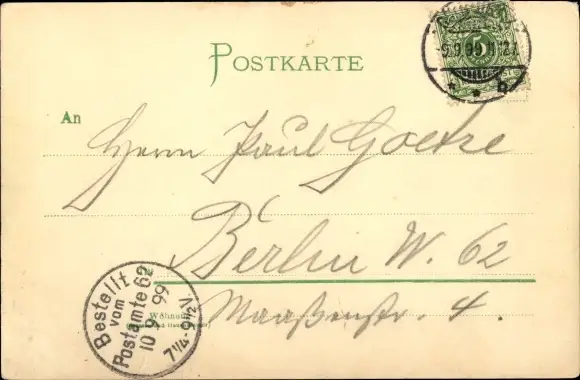 POSTKARTE
5
-9.9.99.11-12V
* * b
An
Herrn Paul Goetze
Berlin W. 62
Wohnung
Maaßenstr. 4.
Bestellt
vom
Postamte 62
10 9 99
7¼-9½V